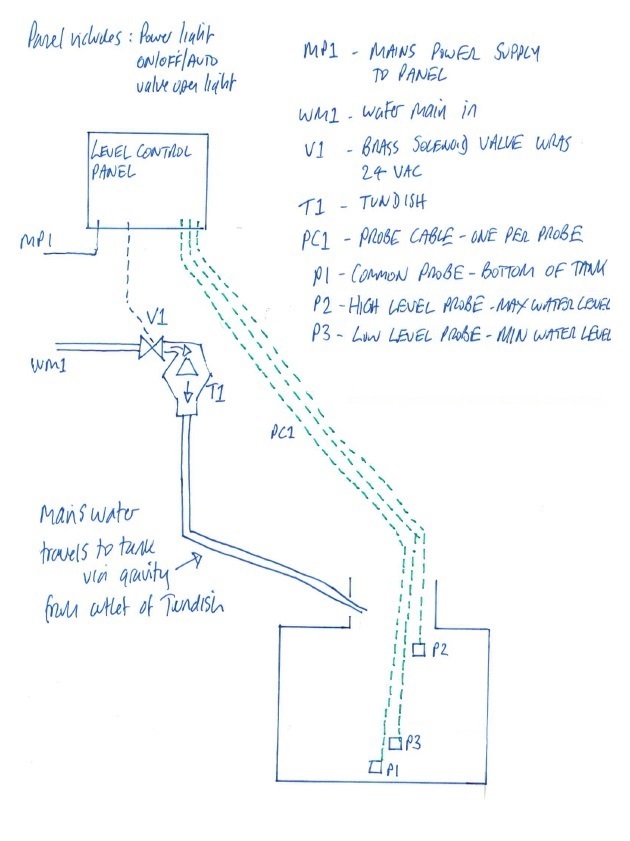 Panel includes : Power light
ON/OFF/AUTO
valve open light
MP1 - MAINS POWER SUPPLY
TO PANEL
WM1 - Water main in
V1 - BRASS SOLENOID VALVE WRAS
24 VAC
T1 - TUNDISH
PC1 - PROBE CABLE - ONE PER PROBE
P1 - COMMON PROBE - BOTTOM OF TANK
P2 - HIGH LEVEL PROBE - MAX WATER LEVEL
P3 - LOW LEVEL PROBE - MIN WATER LEVEL
LEVEL CONTROL
PANEL
MP1
V1
WM1
T1
PC1
Mains water
travels to tank
via gravity
from outlet of Tundish
P2
P3
P1